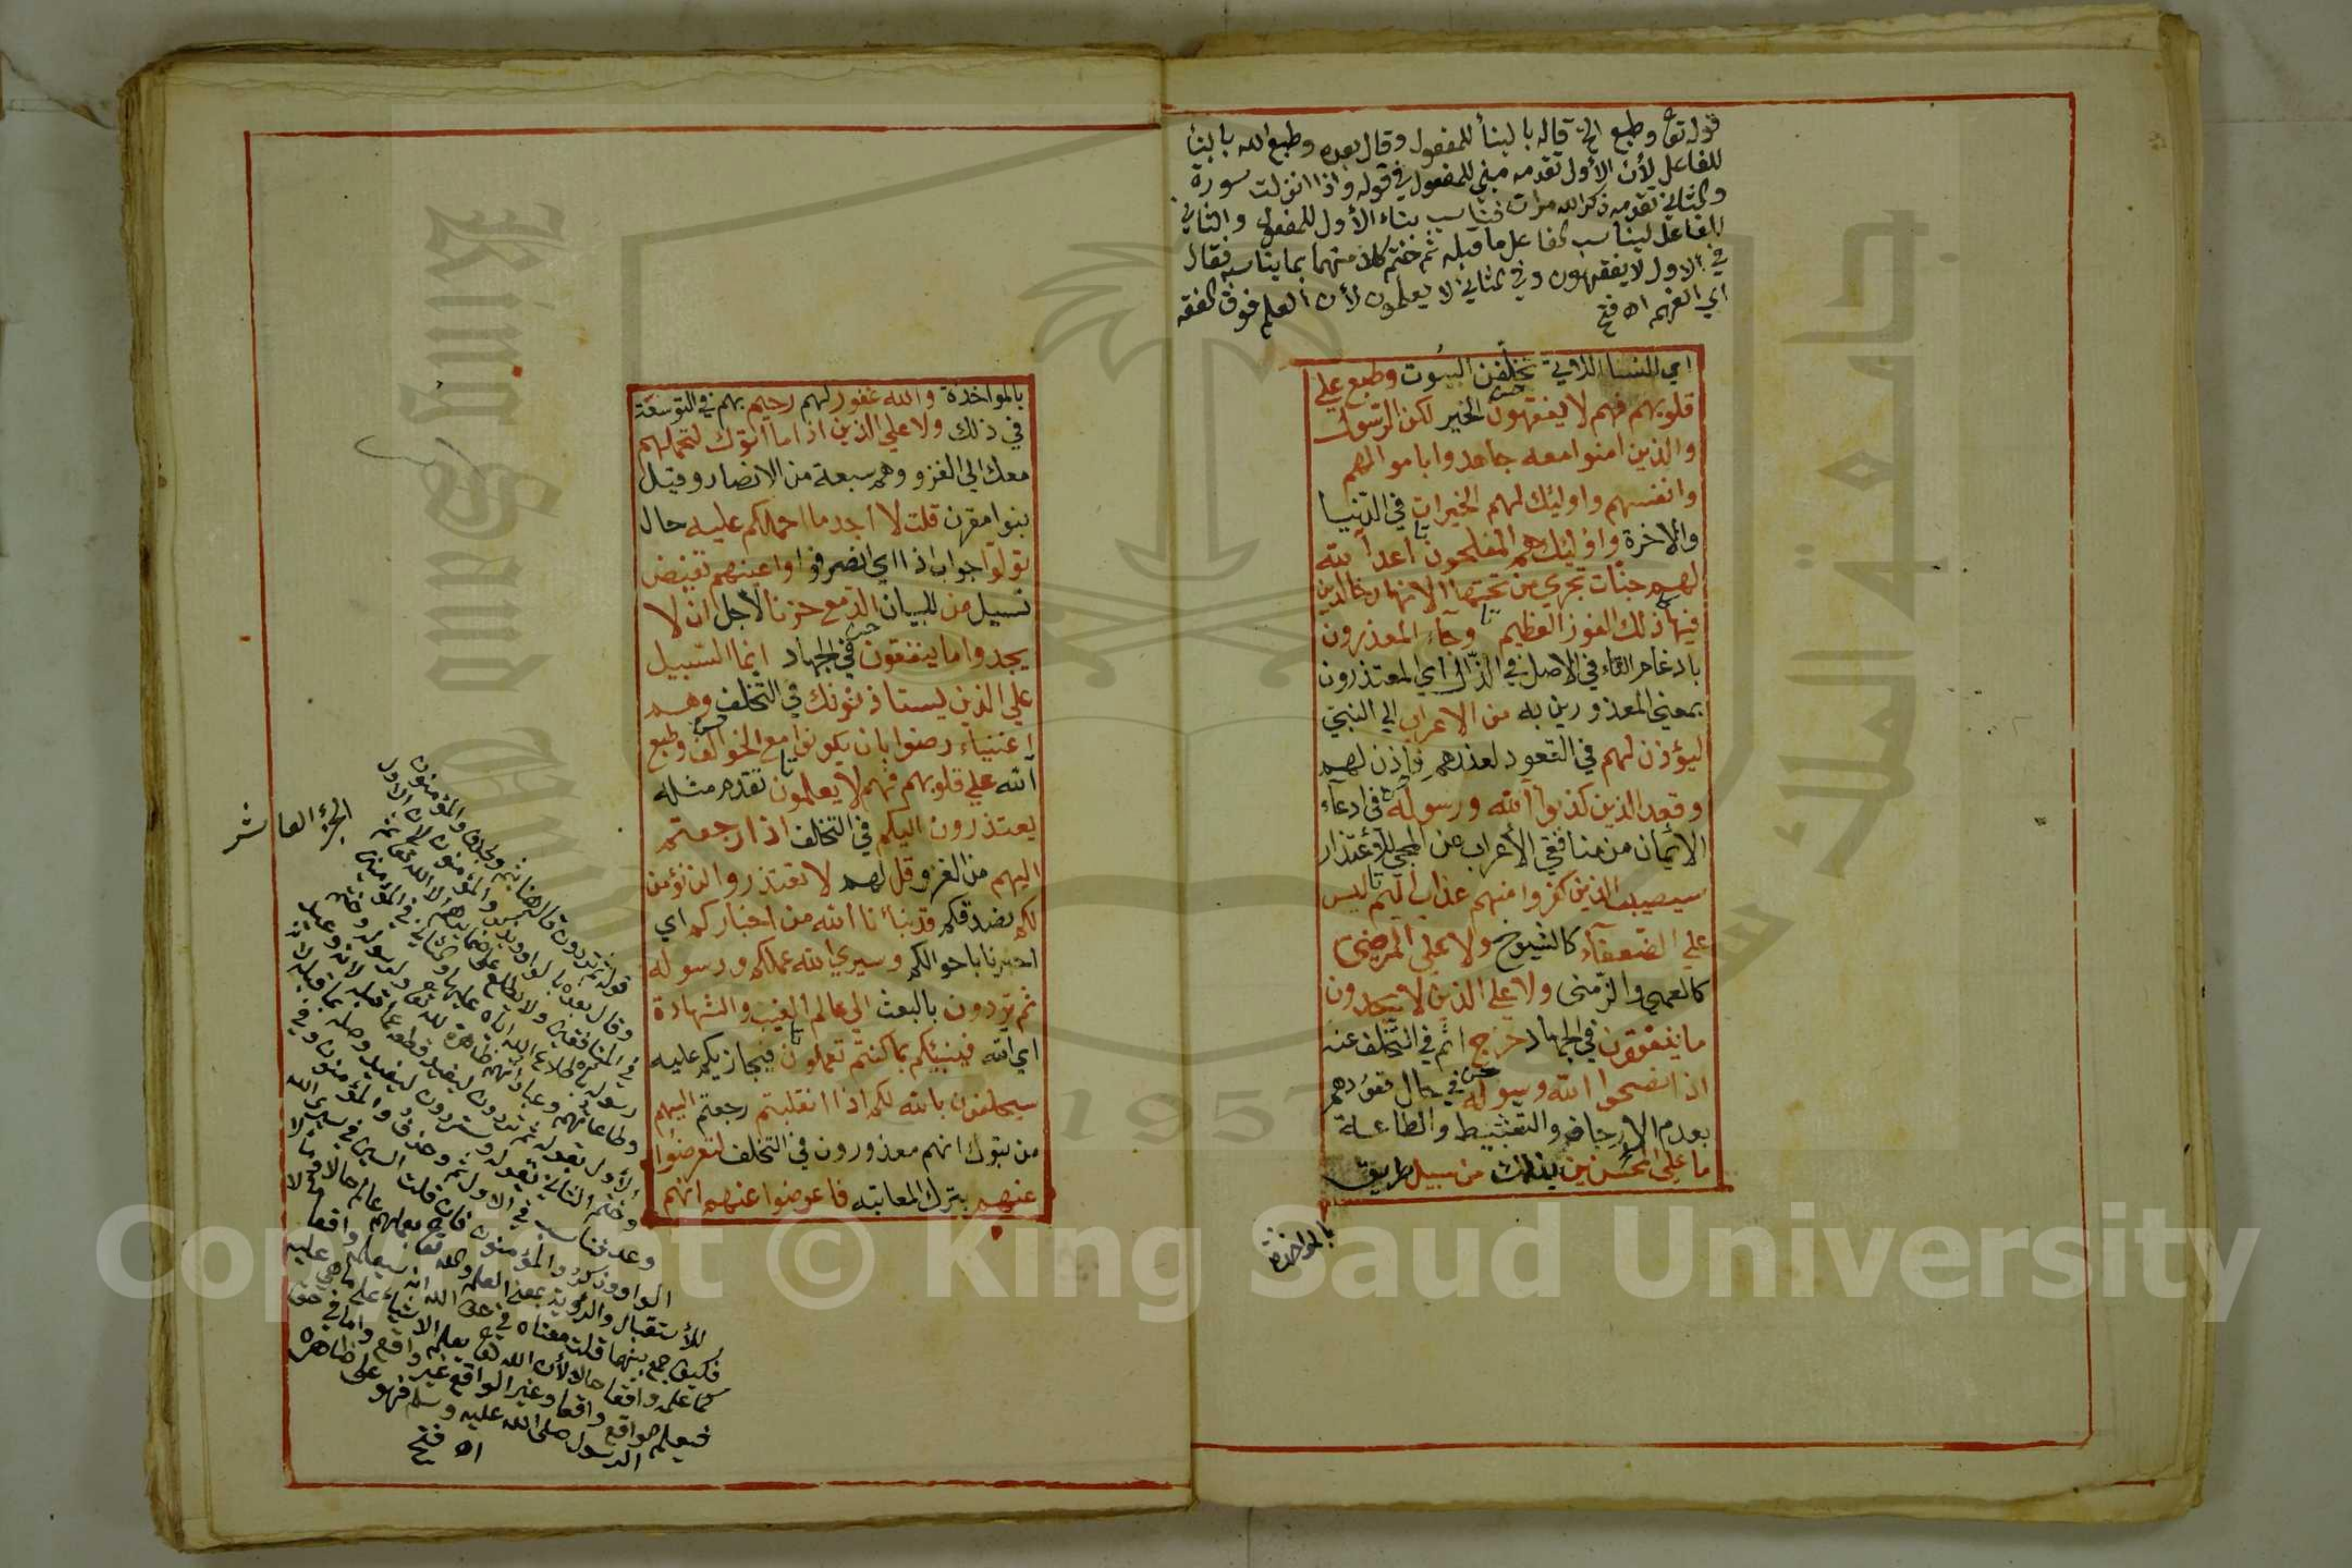 قوله تعا وطبع الخ قاله بالبنأ للمفعول وقال بعده وطبع الله بالبنأ
للفاعل لأن الأول تقدمه مبني للمفعول في قوله واذا انزلت سورة
والثاني تقدمه ذكر الله مرات فناسب بناء الأول للمفعول والثاني
للفاعل ليناسب الفاعل ما قبله ثم ختم كلا منهما بما يناسبه فقال
في الاول لا يفقهون وفي الثاني لا يعلمون لأن العلم فوق الفقه
اي الفهم اه فتح
اي النسا اللاتي تخلفن البيوت وطبع علي
قلوبهم فهم لا يفقهون الخير لكن الرسول
والذين امنوا معه جاهدوا باموالهم
وانفسهم واوليك لهم الخيرات في الدنيا
والاخرة واوليك هم المفلحون اعد الله
لهم جنات تجري من تحتها الانهار خالدين
فيها ذلك الفوز العظيم وجاء المعذرون
بادغام التاء في الاصل في الذال اي المعتذرون
بمعني المعذورين به من الاعراب الي النبي
ليؤذن لهم في القعود لعذرهم فاذن لهم
وقعد الذين كذبوا الله ورسوله في ادعاء
الايمان من منافقي الأعراب عن المجي للأعتذار
سيصيب الذين كفروا منهم عذاب اليم ليس
علي الضعفاء كالشيوخ ولا علي المرضي
كالعمي والزمني ولا علي الذين لا يجدون
ما ينفقون في الجهاد حرج اثم في التخلف عنه
اذا نصحوا لله ورسوله في حال قعودهم
بعدم الارجاف والتثبيط والطاعة
ما علي المحسنين بذلك من سبيل طريق
بالمواخذة
بالمواخذة والله غفور لهم رحيم بهم في التوسعة
في ذلك ولا علي الذين اذا ما اتوك لتحملهم
معك الي الغزو وهم سبعة من الانصار وقيل
بنوا مقرن قلت لا اجد ما احملكم عليه حال
تولوا جواب اذا اي انصرفوا واعينهم تفيض
تسيل من للبيان الدمع حزنا لأجل ان لا
يجدوا ما ينفقون في الجهاد انما السبيل
علي الذين يستاذنونك في التخلف وهم
اغنياء رضوا بان يكونوا مع الخوالف وطبع
الله علي قلوبهم فهم لا يعلمون تقدم مثله
يعتذرون اليكم في التخلف اذا رجعتم
اليهم من الغزو قل لهم لا تعتذروا لن نؤمن
لكم نصدقكم قد نبأنا الله من اخباركم اي
اخبرنا باحوالكم وسيري الله عملكم ورسوله
ثم تردون بالبعث الي عالم الغيب والشهادة
اي الله فينبيكم بما كنتم تعملون فيجازيكم عليه
سيحلفون بالله لكم اذا انقلبتم رجعتم اليهم
من تبوك انهم معذورون في التخلف لتعرضوا
عنهم بترك المعاتبة فاعرضوا عنهم انهم
الجزء العاشر
قوله ثم تردون قاله هنا بثم وبحذف والمؤمنون
وقال بعده بالواو وبذكر والمؤمنون لأن الاول
في المنافقين ولا يطلع على ضمايرهم الا الله تعا ثم
رسوله باطلاع الله اياه عليها والثاني في المؤمنين
وطاعاتهم وعباداتهم ظاهرة لله تعا ولرسوله
الأول بقوله ثم تردون ليفيد قطعه عما قبله لانه وعيد
وختم الثاني بقوله وستردون ليفيد وصله بما قبله لانه
وعد فناسب في الاول ثم وحذف والمؤمنون وفي
الواو وذكر والمؤمنون فان قلت السين في سيري الله
للأستقبال والرؤية بمعنى العلم والله تعا عالم بعملهم حالا
فكيف جمع بينهما قلت معناه في حق الله انه سيعلمه واقعا
كما علمه واقعا حالا لأن الله تعا يعلم الاشياء على ما هي عليه
فيعلم الواقع واقعا وغير الواقع غير واقع واما في حق
الرسول صلى الله عليه وسلم فهو على ظاهره
اه فتح
Copyright © King Saud University
King Saud University
جامعة الملك سعود
1957